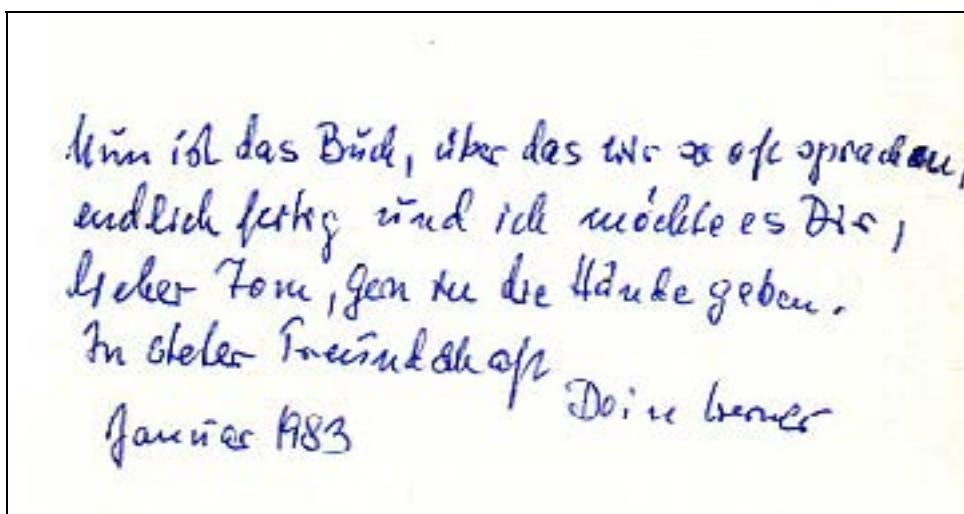 Nun ist das Buch, über das wir so oft sprachen,
endlich fertig und ich möchte es Dir,
lieber Tom, gern in die Hände geben.
In steter Freundschaft
Dein Werner
Januar 1983